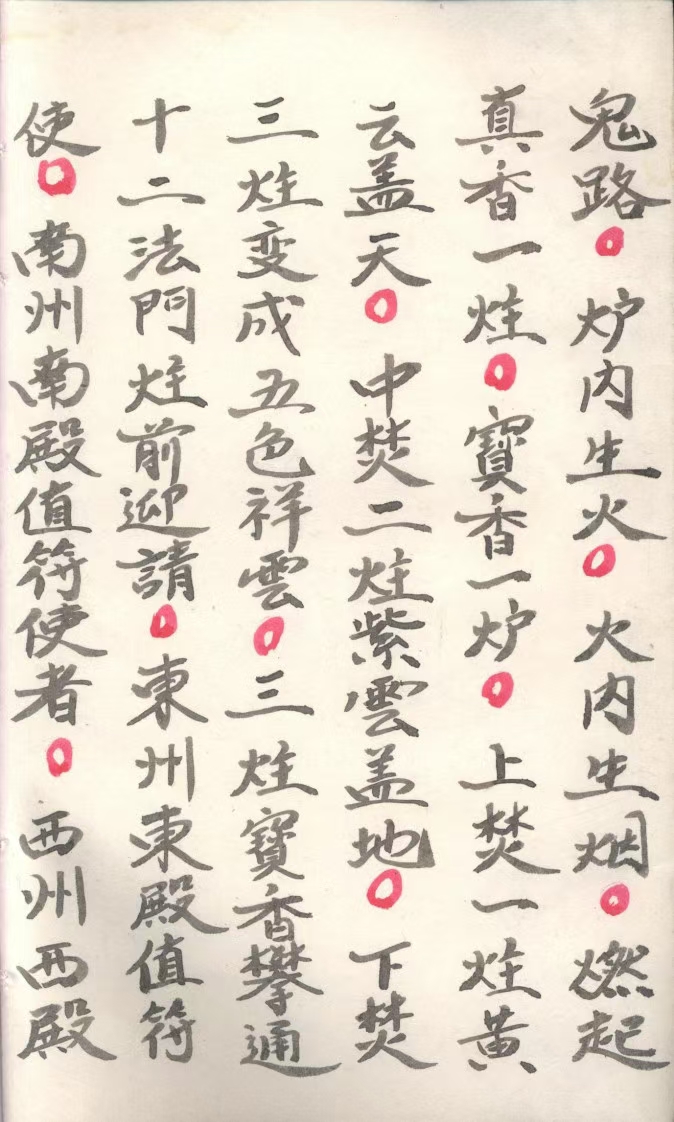 鬼路○炉内生火○火内生烟○燃起
真香一炷○寶香一炉○上焚一炷黄
云盖天○中焚二炷紫雲盖地○下焚
三炷变成五色祥雲○三炷寶香攀通
十二法門炷前迎請○東州東殿值符
使○南州南殿值符使者○西州西殿